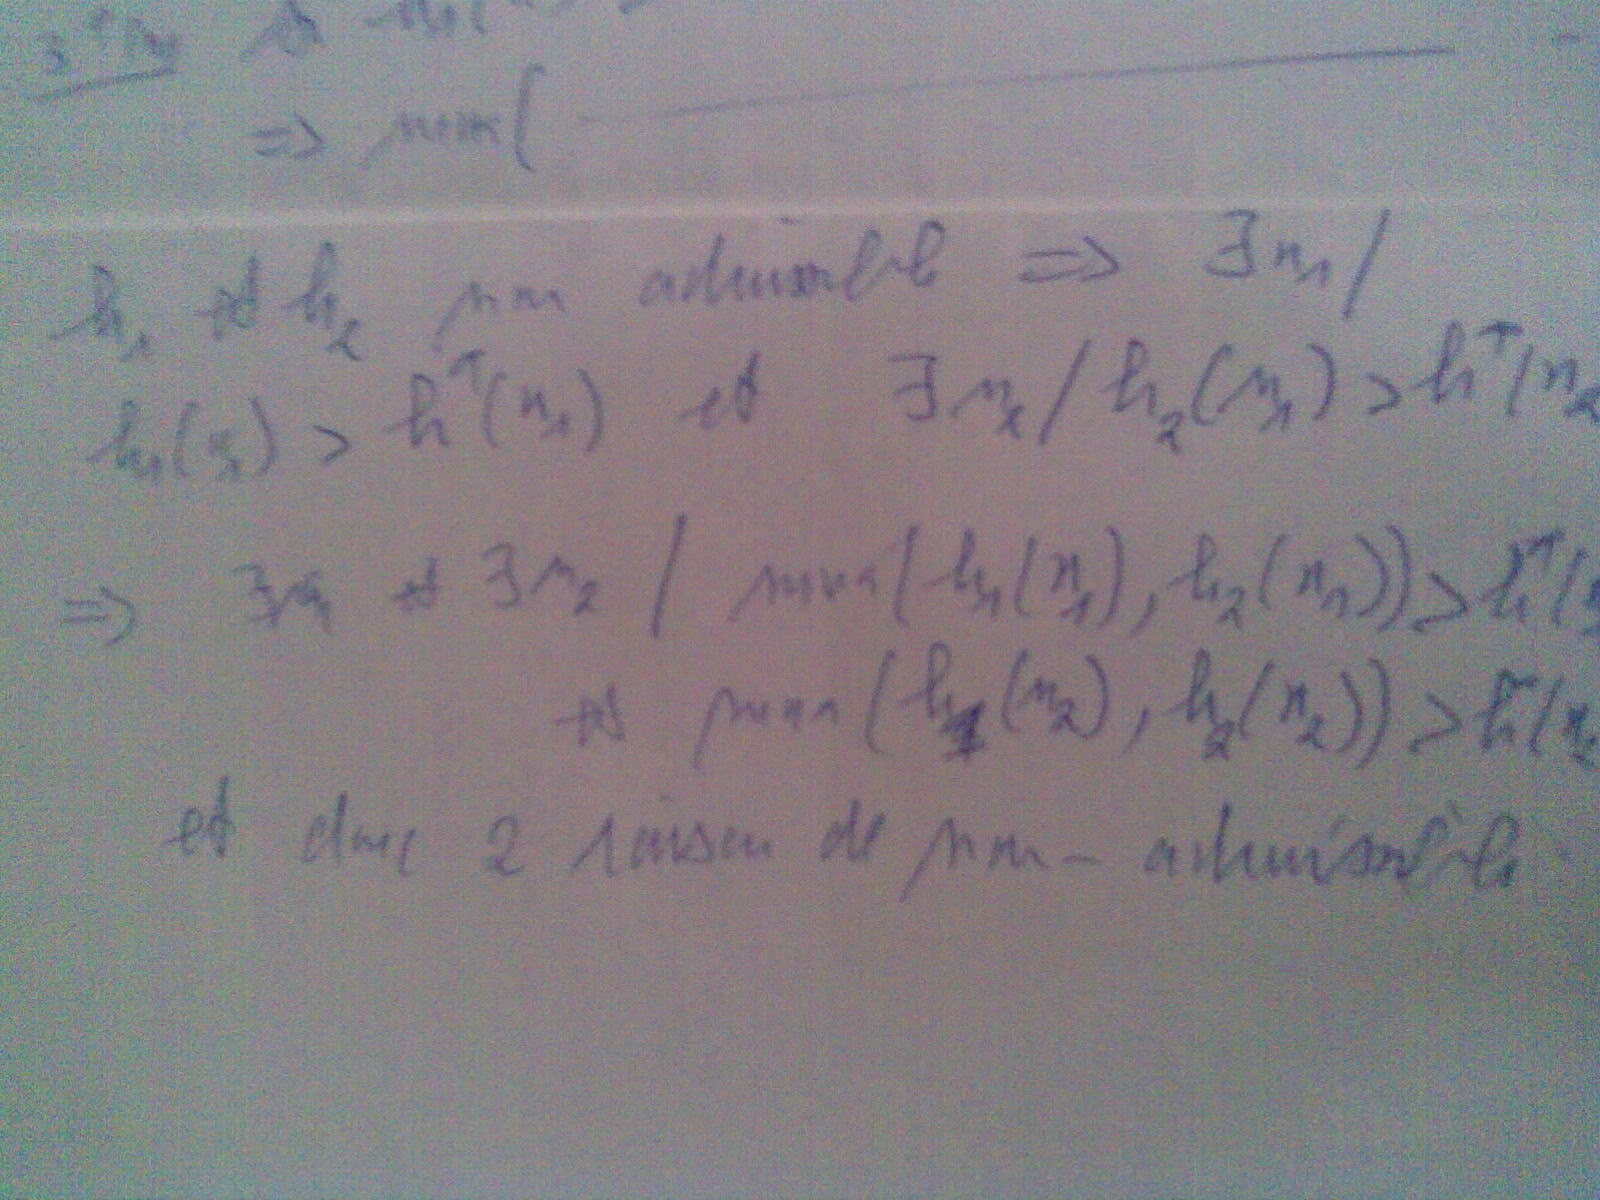 => max(
h₁ et h₂ non admissible => ∃n₁/
h₁(n₁) > h*(n₁) et ∃n₂/h₂(n₂) > h*(n₂
=> ∃n₁ et ∃n₂ / max(h₁(n₁), h₂(n₁)) > h*(n
et max(h₁(n₂), h₂(n₂)) > h*(n
et donc 2 raison de non-admissible.